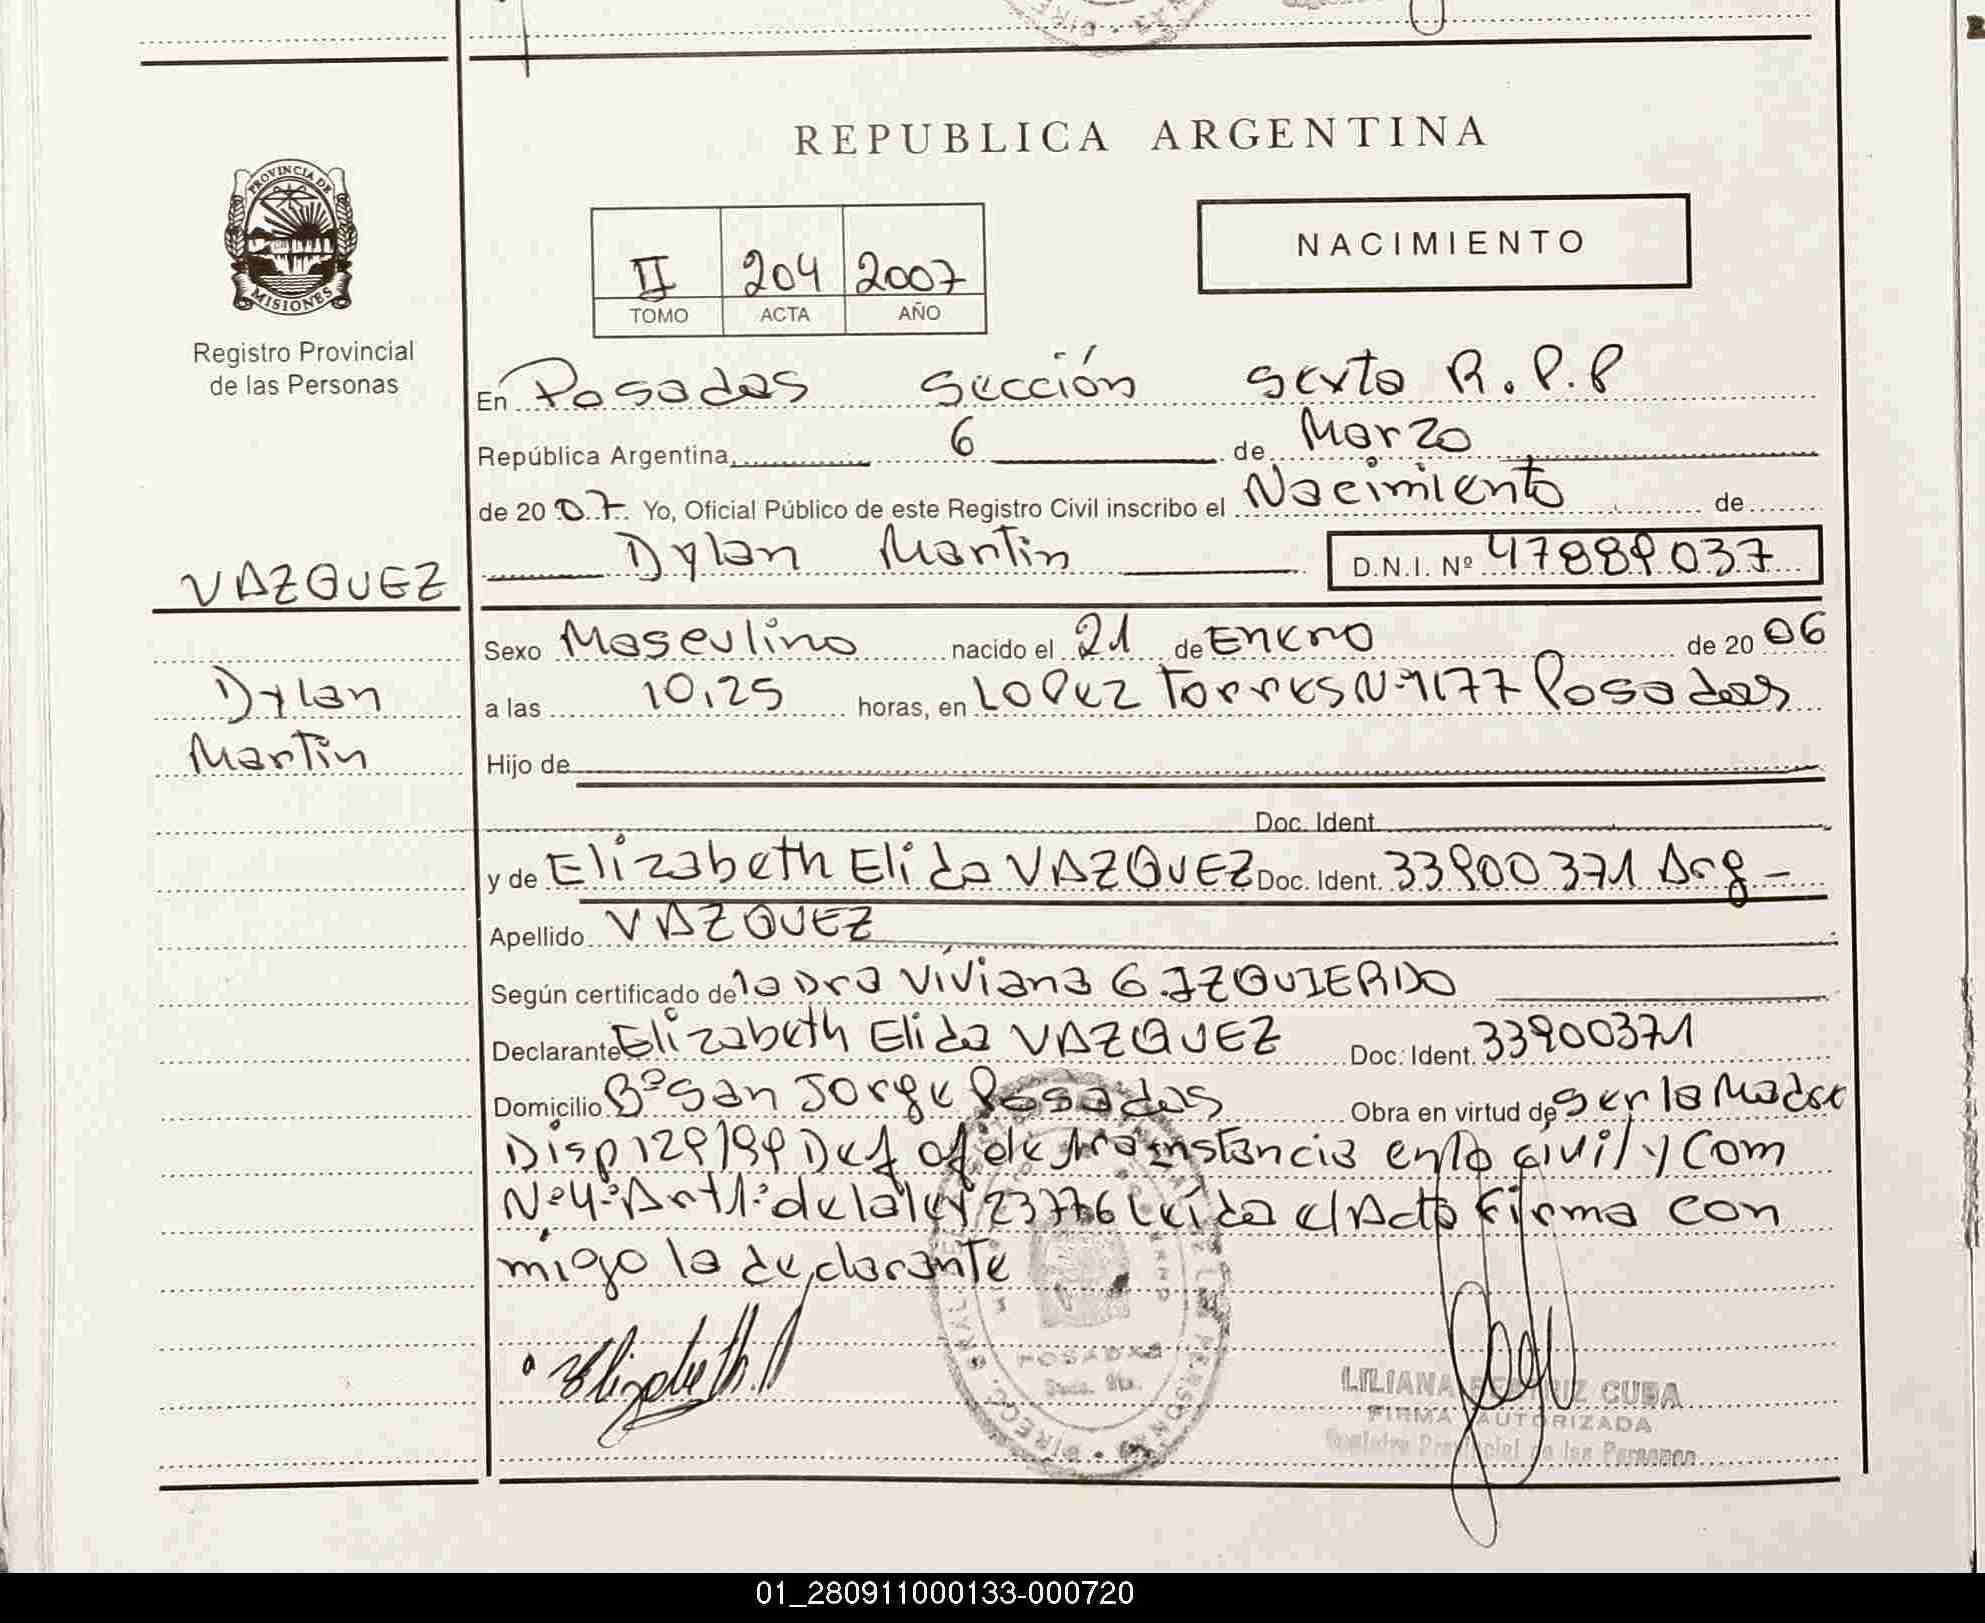 REPUBLICA ARGENTINA
PROVINCIA DE
MISIONES
Registro Provincial
de las Personas
NACIMIENTO
II 204 2007
TOMO ACTA AÑO
En Posadas Sección Sexta R.P.P
República Argentina, 6 de Marzo
de 2007. Yo, Oficial Público de este Registro Civil inscribo el Nacimiento de
VAZQUEZ
Dylan Martin D.N.I. Nº 47889037
Sexo Masculino nacido el 21 de Enero de 2006
Dylan
a las 10,25 horas, en LOPez Torres Nº1177 Posadas
Martin
Hijo de
Doc. Ident.
y de Elizabeth Elida VAZQUEZ Doc. Ident. 33900371 Arg -
Apellido VAZQUEZ
Según certificado de la Dra Viviana G. IZQUIERDO
Declarante Elizabeth Elida VAZQUEZ Doc. Ident. 33900371
Domicilio Bº San Jorge Posadas Obra en virtud de ser la Madre
Disp 129/99 Def of de instancia en lo civil y Com
Nº4: Art1: de la ley 23776 Leída el Acta Firma con
migo la declarante
Elizabeth.
POSADAS
LILIANA BEATRIZ CUBA
FIRMA AUTORIZADA
Registro Provincial de las Personas
01_280911000133-000720